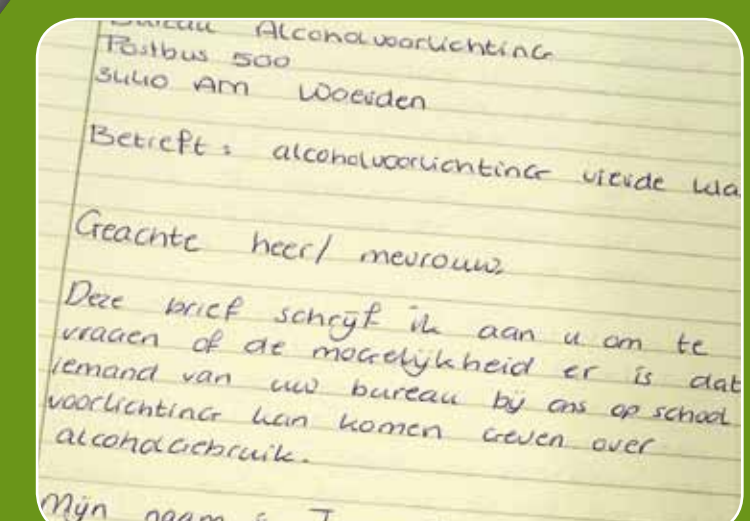 Bureau Alcoholvoorlichting
Postbus 500
3440 AM Woerden
Betreft: alcoholvoorlichting vierde kla
Geachte heer/mevrouw,
Deze brief schrijf ik aan u om te
vragen of de mogelijkheid er is dat
iemand van uw bureau bij ons op school
voorlichting kan komen geven over
alcoholgebruik.
Mijn naam is